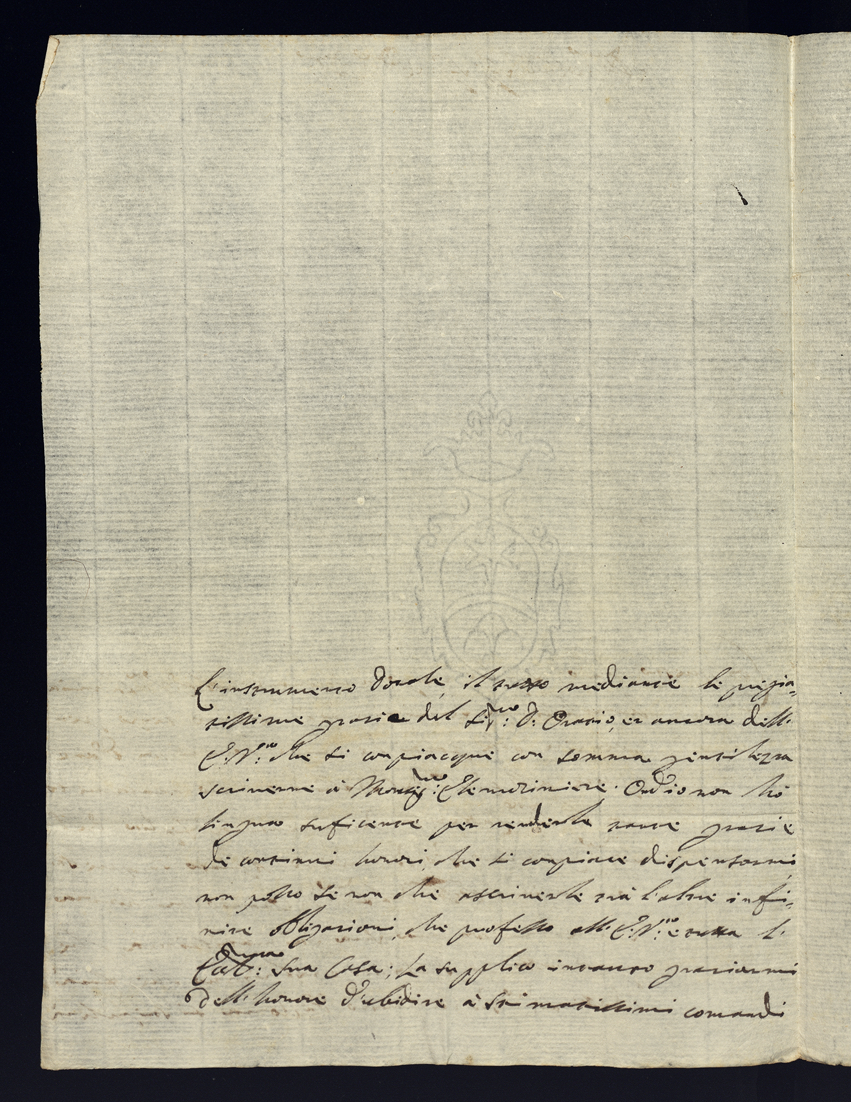 L'instrumento dotale, il tutto mediante le pregia=
tissime grazie del Sig.re D. Orazio, et ancora dell'
E. V.ra che si compiacque con somma gentilezza
scriverne à Monsig.r Elemosiniere. Ond'io non hò
lingua suficente per renderle tante grazie
de continui honori che si compiace dispensarmi,
non posso se non che ascriverle trà l'altre infi=
nite obligazioni, che professo all' E. V.ra e tutta l'
sua Casa; La supplico intanto graziarmi
dell'honore d'ubidire à stimatissimi comandi